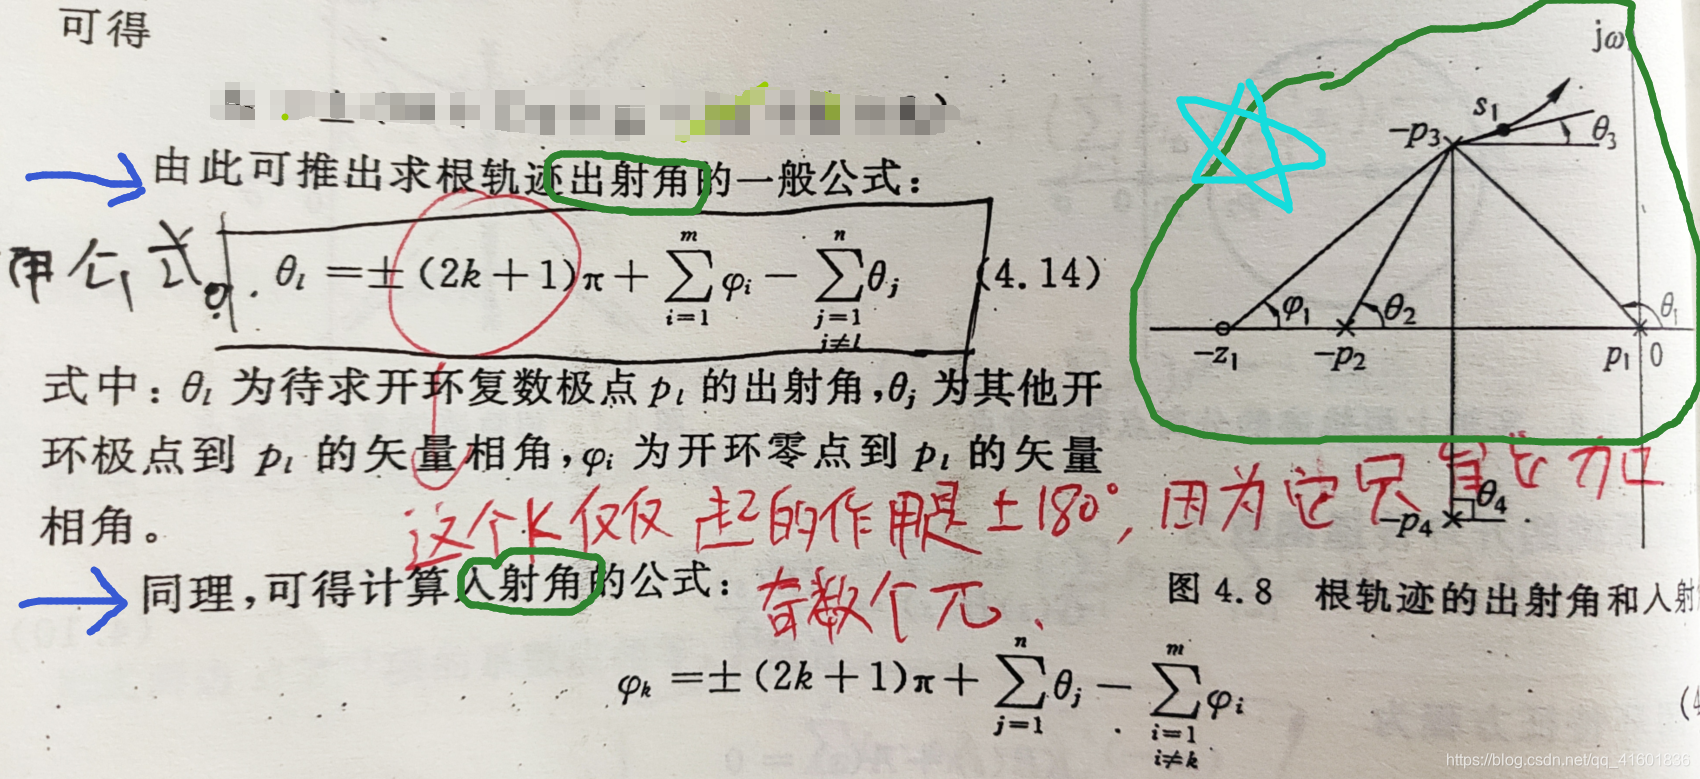 可得
由此可推出求根轨迹出射角的一般公式：
用公式。
θₗ =±(2k+1)π+ ∑ᵢ₌₁ᵐ φᵢ − ∑ⱼ₌₁,ⱼ≠ₗⁿ θⱼ (4.14)
式中：θₗ 为待求开环复数极点 pₗ 的出射角,θⱼ 为其他开
环极点到 pₗ 的矢量相角,φᵢ 为开环零点到 pₗ 的矢量
相角。
这个K仅仅起的作用是±180°,因为它只是加
奇数个π、
同理,可得计算入射角的公式：
φₖ =±(2k+1)π+ ∑ⱼ₌₁ⁿ θⱼ − ∑ᵢ₌₁,ᵢ≠ₖᵐ φᵢ
(4
jω
s₁
−p₃
θ₃
φ₁
θ₂
θ₁
−z₁
−p₂
p₁
0
θ₄
−p₄
图 4.8 根轨迹的出射角和入射
https://blog.csdn.net/qq_41601836